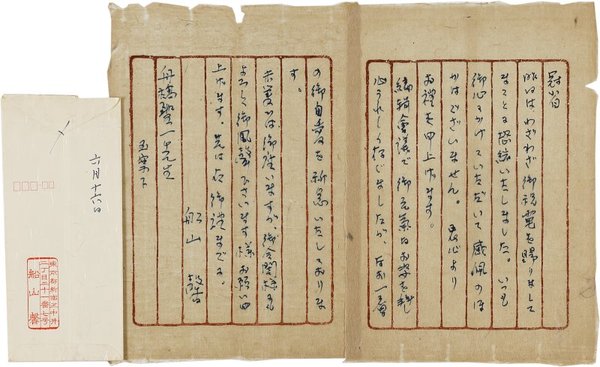 冠省
昨日はわざわざ御祝電を賜りまして
まことに恐縮いたしました。いつも
御心をかけていただいて感佩のほ
かはございません。衷心より
お礼を申上げます。
編輯会議で御元気なお姿を拝し
心うれしく存じましたが、なお一層
の御自愛を祈念いたしておりま
す。
末筆では御座いますが、御令閨様にも
よろしく御風声下さいます様お願い申
上げます。先は右御礼まで。
船山 馨
舟橋聖一先生
玉案下
六月十六日
東京都新宿区
二丁目二十一番七号
船山馨